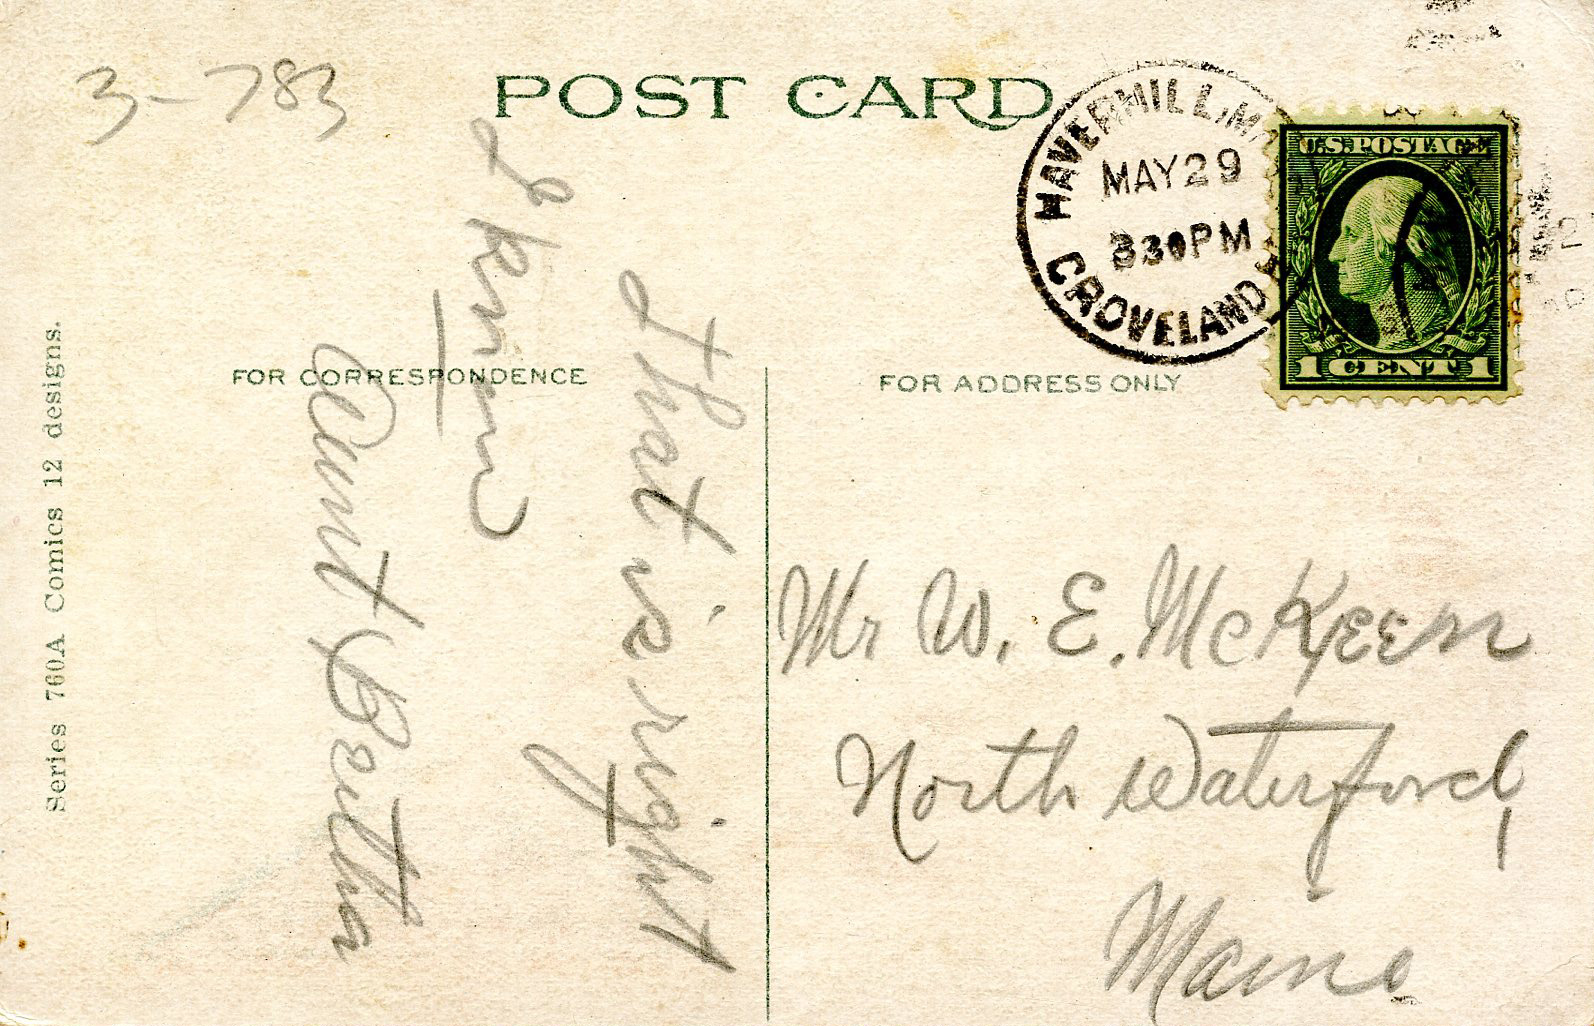 3-783
POST CARD
HAVERHILL, MA
MAY 29
830PM
GROVELAND
U.S. POSTAGE
1 CENT 1
FOR CORRESPONDENCE
FOR ADDRESS ONLY
That is right
I know
Aunt Bertha
Mr W. E. McKeen
North Waterford,
Maine
Series 760A Comics 12 designs.